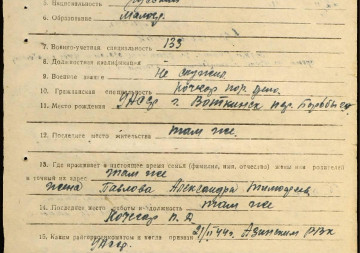 5. Национальность
6. Образование Малогр.
7. Военно-учетная специальность 133
8. Должностная квалификация
9. Воинское звание Не служил
10. Гражданская специальность Кочегар пар. депо.
11. Место рождения УАССР г. Воткинск пер.
12. Последнее место жительства там же.
13. Где проживает в настоящее время семья (фамилия, имя, отчество) жены или родителей
и точный их адрес там же
жена Павлова Александра Тимофеев
14. Последнее место работы и должность там же
Кочегар п. д
15. Каким райгорвоенкоматом и когда призван 21/II 44г. Азинским РВК
УАССР.